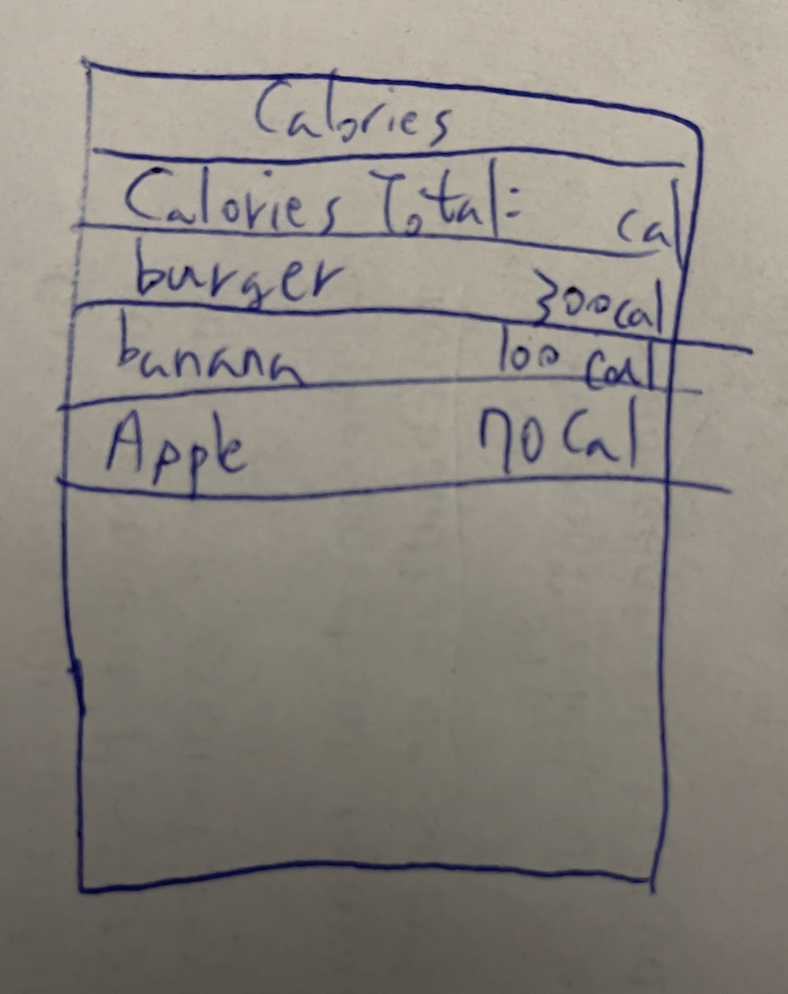 Calories
Calories Total: cal
burger 300 cal
banana 100 cal
Apple 70 Cal